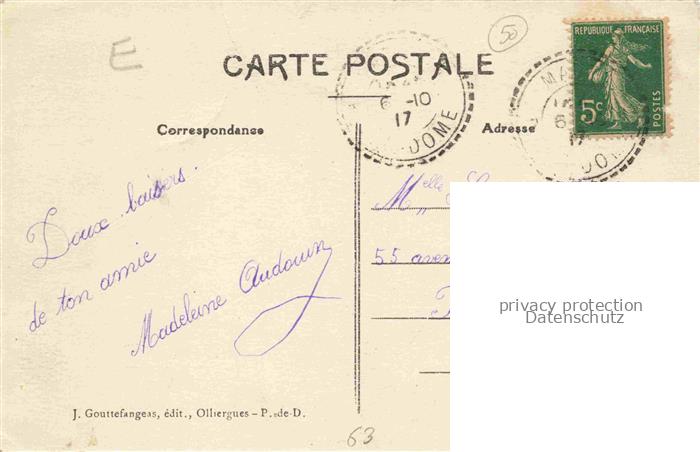 E
50
CARTE POSTALE
RÉPUBLIQUE FRANÇAISE
5c
POSTES
6 -10
17
DOME
MA
6
17
DO
Correspondance
Adresse
Doux baisers.
de ton amie
Madeleine Audouin
Melle
55 aven
privacy protection
Datenschutz
J. Gouttefangeas, édit., Olliergues - P.-de-D.
63